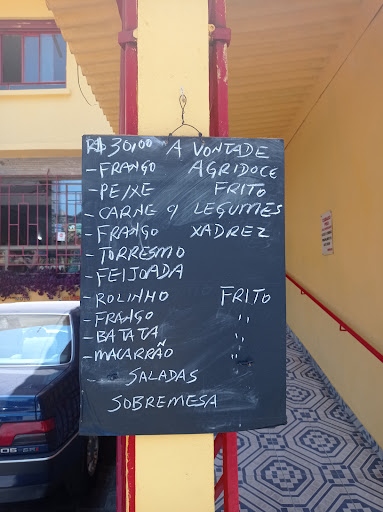 R$30,00 A VONTADE
- FRANGO AGRIDOCE
- PEIXE FRITO
- CARNE 9 LEGUMES
- FRANGO XADREZ
- TORRESMO
- FEIJOADA
- ROLINHO FRITO
- FRANGO ,,
- BATATA ,,
- MACARRÃO ,,
- SALADAS
SOBREMESA